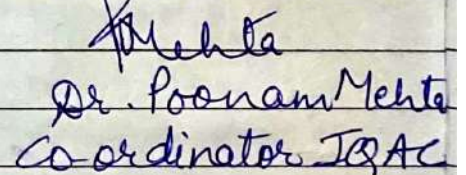 PMehta
Dr. Poonam Mehta
Co-ordinator IQAC